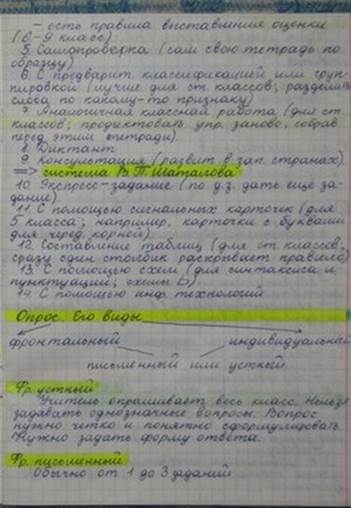 - есть правила выставления оценки
(6-9 класс)
5. Самопроверка (сам свою тетрадь по
образцу)
6. С предварит. классификацией или груп-
пировкой (лучше для ст. классов; разделить
слова по какому-то признаку)
7. Аналогичная классная работа (для ст.
классов; продиктовать упр. заново, собрав
перед этим тетради)
8. Диктант
9. Консультация (развит. в зап. странах)
=> система В. Ф. Шаталова
10. Экспресс-задание (по д.з. дать ещё за-
дание)
11. С помощью сигнальных карточек (для
5 класса; например, карточки с буквами
для черед. корней)
12. Составление таблиц (для ст. классов,
сразу один столбик раскрывает правило)
13. С помощью схем (для синтаксиса и
пунктуации; схемы Б)
14. С помощью инф. технологий
Опрос. Его виды
фронтальный индивидуальный
письменный или устный
Фр. устный
Учитель опрашивает весь класс. Нельзя
задавать однозначные вопросы. Вопрос
нужно чётко и понятно сформулировать.
Нужно задать форму ответа.
Фр. письменный
Обычно от 1 до 3 заданий